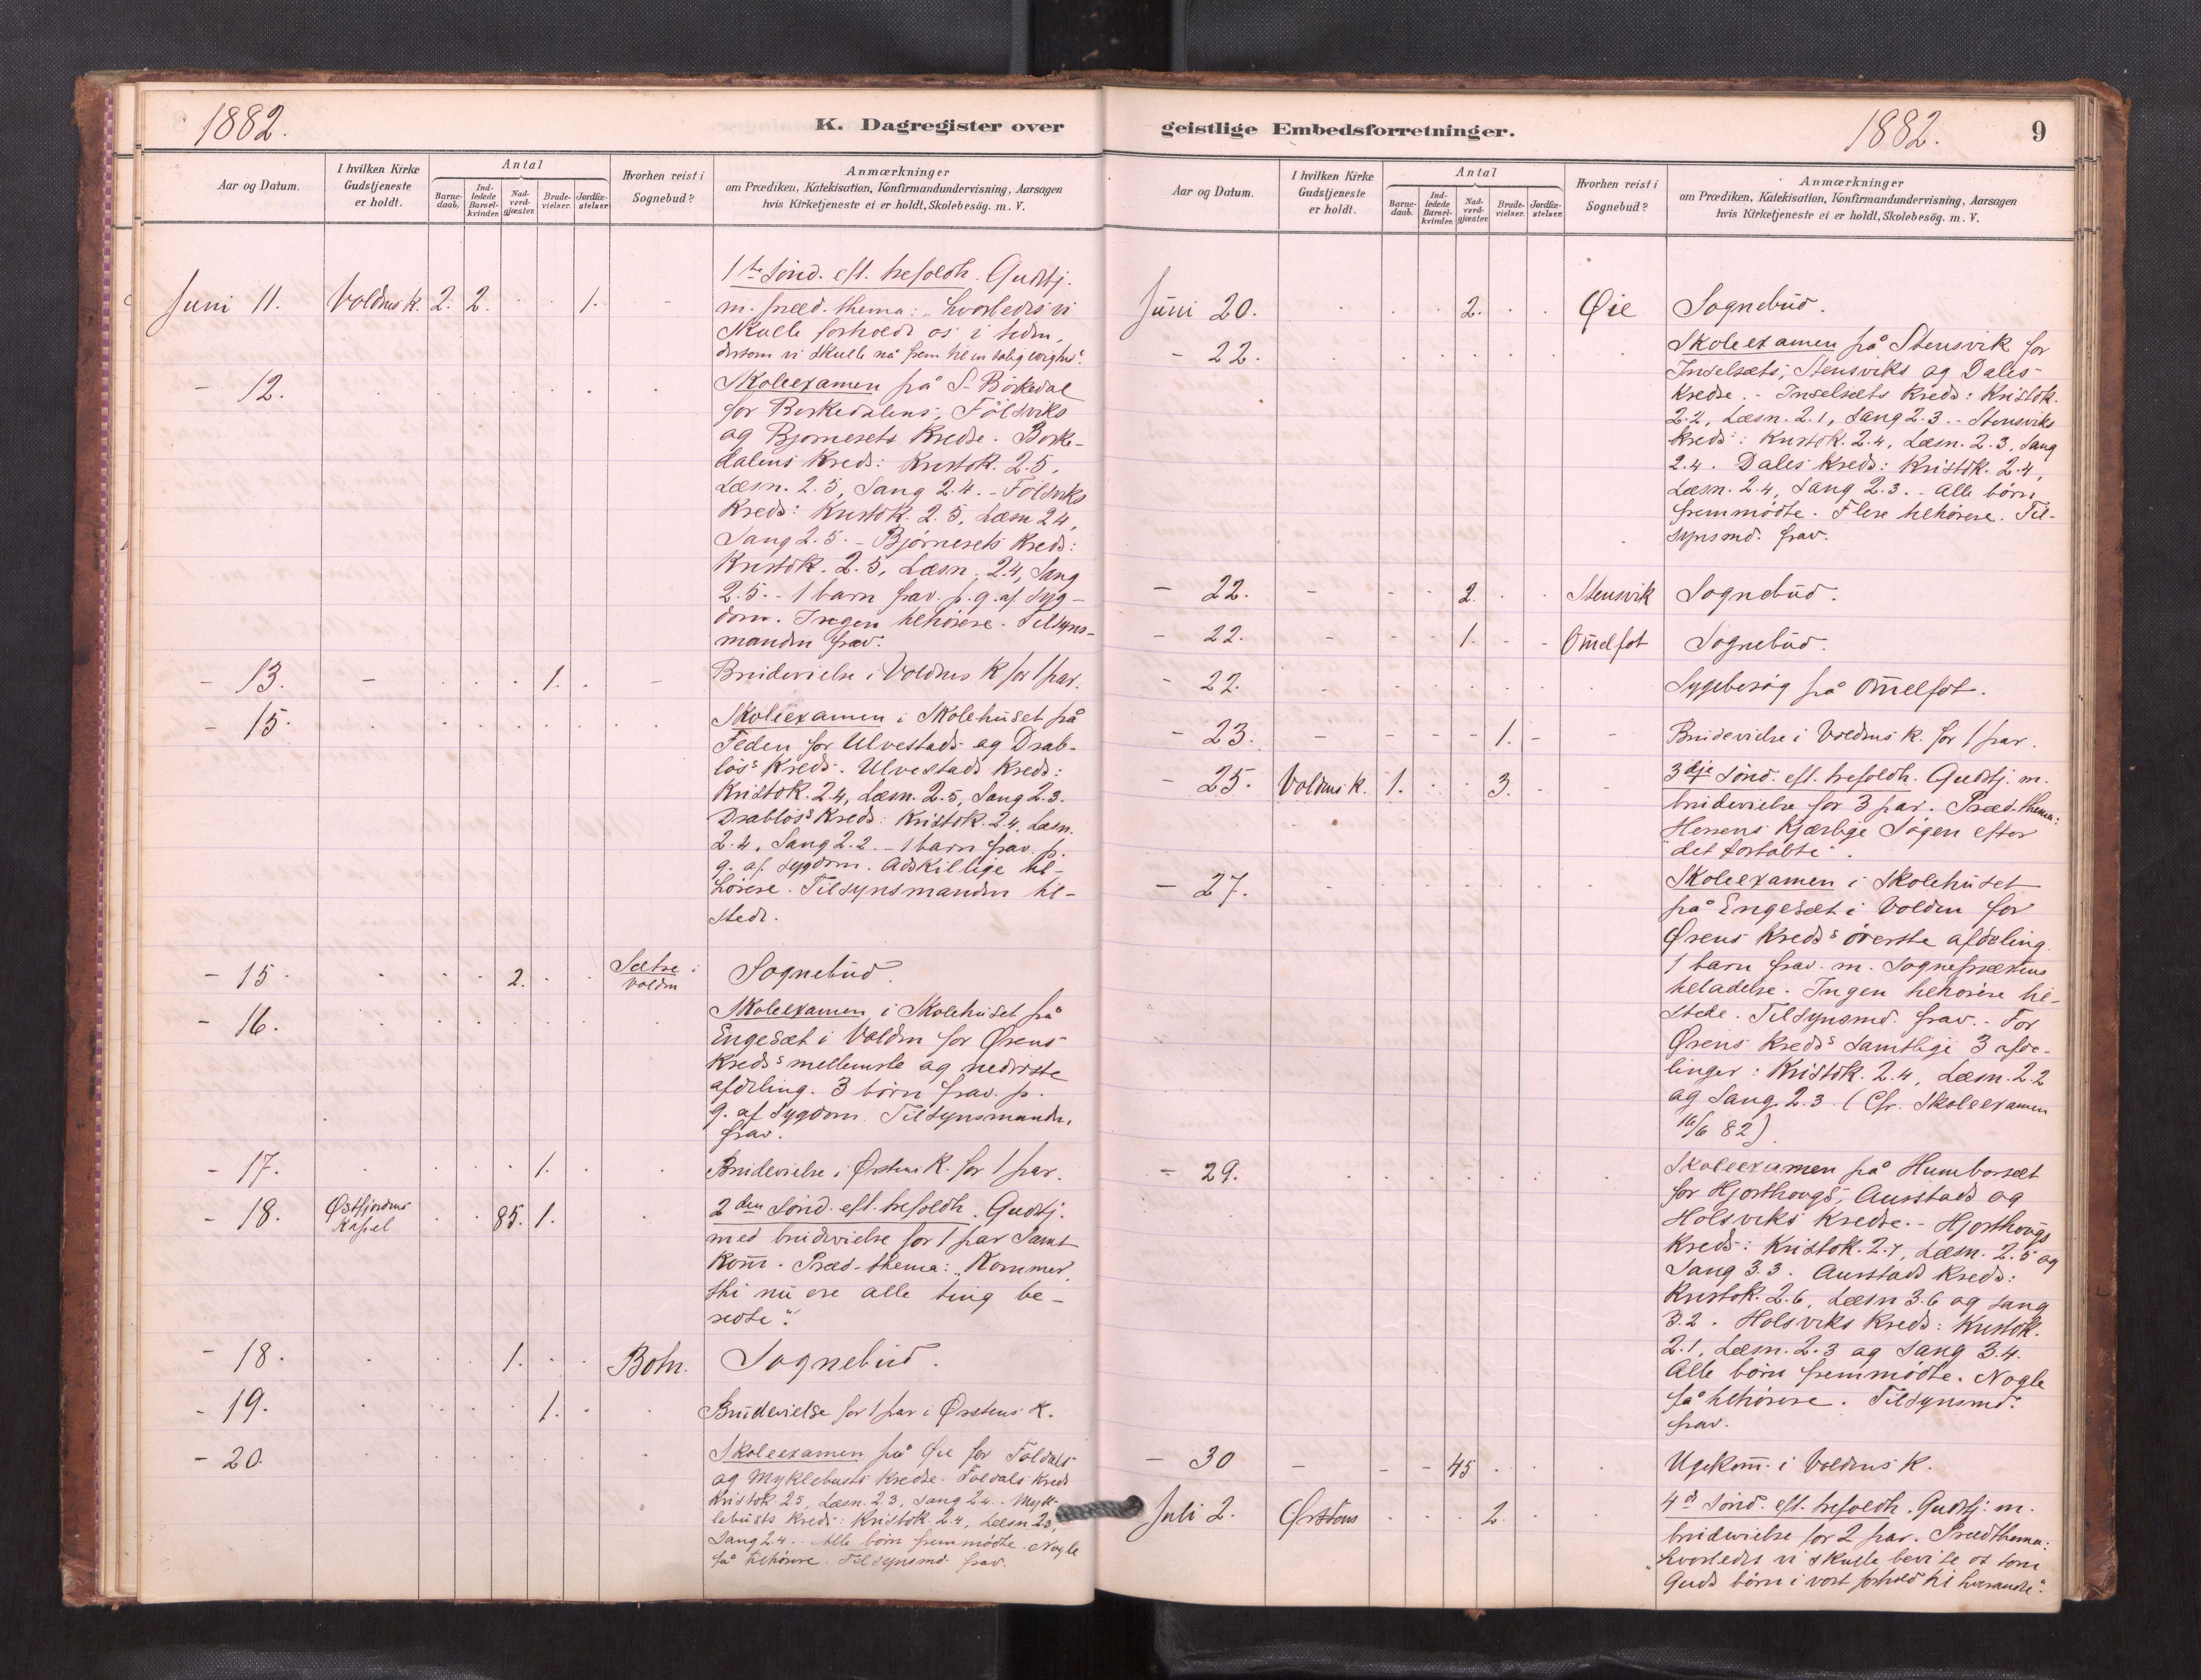 1882.
K. Dagregister over
Aar og Datum.
I hvilken Kirke Gudstjeneste er holdt.
Antal
Barnedaab.
Indledede Barselkvinder.
Nadverdgjæster.
Brudevielser.
Jordfæstelser
Hvorhen reist i Sognebud?
Anmærkninger
om Prædiken, Katekisation, Konfirmandundervisning, Aarsagen
hvis Kirketjeneste ei er holdt, Skolebesög. m. V.
1ste Sönd. eft. trefoldh. Gudstj.
Juni 11. Voldens K. 2. 2. . . 1. - m. præd. thema: „hvorledes vi
skulle forholde os i tiden,
dersom vi skulle nå frem til en salig evighed".
- 12. Skoleexamen på S. Börkedal
for Berkedalens, Fölsviks
og Bjornesets Kredse. Borke-
dalens Kreds: Kristdk. 2.5,
Læsn. 2.5, Sang 2.4. - Folsviks
Kreds: Kristdk. 2.5, Læsn 2.4,
Sang 2.5. - Bjørnesets Kreds:
Kristdk. 2.5, Læsn. 2.4, Sang
2.5. - 1 barn frav. p. g. af Syg-
dom. Ingen tilhörere. Tilsyns-
manden frav.
- 13. - . . . 1. . - Brudevielse i Voldens K for 1 par.
- 15. Skoleexamen i Skolehuset på
Feden for Ulvestads og Drab-
lös's Kreds. Ulvestads Kreds:
Kristdk. 2.4, Læsn. 2.5, Sang 2.3.
Drablös's Kreds: Kristdk. 2.4, Læsn.
2.4, Sang 2.2. - 1 barn frav. p.
g. af sygdom. Adskillige til-
hörere. Tilsynsmanden til-
stede.
- 15. 2. Sætre i Volden Sognebud.
- 16. Skoleexamen i Skolehuset på
Engesæt i Volden for Ørens
Kreds's mellemste og nederste
afdeling. 3 börn frav. p.
g. af Sygdom. Tilsynsmanden
frav.
- 17. 1. Brudevielse i Ørstens K. for 1 par.
- 18. Østfjordens Kapel 85. 1. 2den Sönd. eft. trefoldh. Gudstj.
med brudevielse for 1 par Samt
Kom̄. Præd-thema: „Kommer,
thi nu ere alle ting be-
redte".
- 18. 1. Botn. Sognebud.
- 19. 1. Brudevielse for 1 par i Ørstens K.
- 20. Skoleexamen på Øie for Foldals
og Myklebusts Kredse. Foldals Kreds
Kristdk 2.5, Læsn. 2.3, Sang 2.4. - Myk-
lebusts Kreds: Kristdk. 2.4, Læsn 2.3,
Sang 2.4. - Alle börn fremmödte. Nogle
få tilhörere. Tilsynsmd. frav.
geistlige Embedsforretninger.
1882.
9
Aar og Datum.
I hvilken Kirke Gudstjeneste er holdt.
Antal
Barnedaab.
Indledede Barselkvinder.
Nadverdgjæster.
Brudevielser.
Jordfæstelser.
Hvorhen reist i Sognebud?
Anmærkninger
om Prædiken, Katekisation, Konfirmandundervisning, Aarsagen
hvis Kirketjeneste ei er holdt, Skolebesög. m. V.
Juni 20. 2. Øie Sognebud.
- 22. Skoleexamen på Stensvik for
Inselsæts, Stensviks og Dales-
Kredse. - Inselsæts Kreds: Kristdk.
2.2, Læsn. 2.1, Sang 2.3. - Stensviks
Kreds: Kristdk. 2.4, Læsn. 2.3, Sang
2.4. Dales Kreds: Kristdk. 2.4,
Læsn. 2.4, Sang 2.3. - Alle börn
fremmödte. Flere tilhörere. Til-
synsmd. frav.
- 22. - - - 2. . . Stensvik Sognebud.
- 22. - - - 1. - - Om̄elfot Sognebud.
- 22. Sygebesög på Om̄elfot.
- 23. - - - - 1. - - Brudevielse i Voldens K. for 1 par.
- 25. Voldens K. 1. . . 3. 3dje Sönd. eft. trefoldh. Gudstj. m.
brudevielse for 3 par. Præd. thema:
„Herrens Kjærlige Sögen efter
det fortabte".
- 27. Skoleexamen i Skolehuset
på Engesæt i Volden for
Ørens Kreds's överste afdeling.
1 barn frav. m. Sognepræstens
tilladelse. Ingen tilhörere til-
stede. Tilsynsmd. frav. - For
Ørens Kreds's Samtlige 3 afde-
linger: Kristdk. 2.4, Læsn. 2.2
og Sang 2.3. (Cfr. Skoleexamen
16/6 82)
- 29. Skoleexamen på Humborsæt
for Hjorthougs, Aurstads og
Holsviks Kredse. - Hjorthougs
Kreds: Kristdk. 2.7, Læsn. 2.5 og
Sang 3.3. Aurstads Kreds:
Kristdk. 2.6, Læsn 3.6 og Sang
3.2. Holsviks Kreds: Kristdk.
2.1, Læsn. 2.3 og Sang 3.4.
Alle börn fremmödte. Nogle
få tilhörere. Tilsynsmd.
frav.
- 30 - - - 45 . . Ugekom̄. i Voldens K.
Juli 2. Ørstens . . . 2. 4de Sönd. eft. trefoldh. Gudstj. m.
brudevielse for 2 par. Præd thema:
„hvorledes vi skulle bevise os som
Guds börn i vort forhold til hverandre".